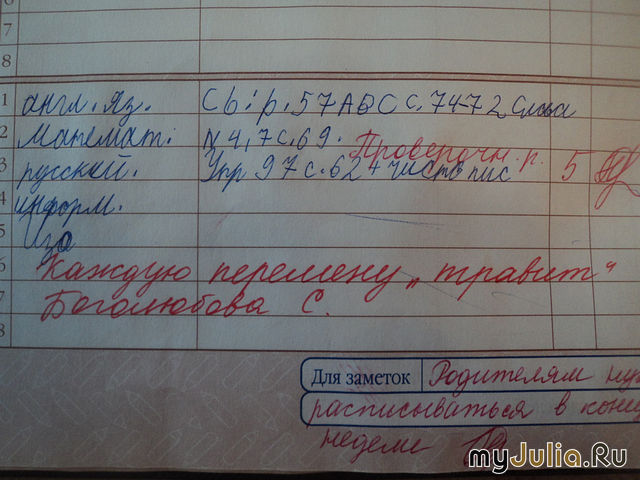 7
8
1 англ. яз. Cb: p. 57 ABC С. 74-72 Слова
2 Математ. N 4, 7 с. 69. Проверочн. р. 5
3 русский. Упр 97 с. 62 + чистопис
4 информ.
5 Изо
6 Каждую перемену „травит“
7 Боголюбова С.
8
Для заметок Родителям
расписываться в конце
недели
myJulia.Ru